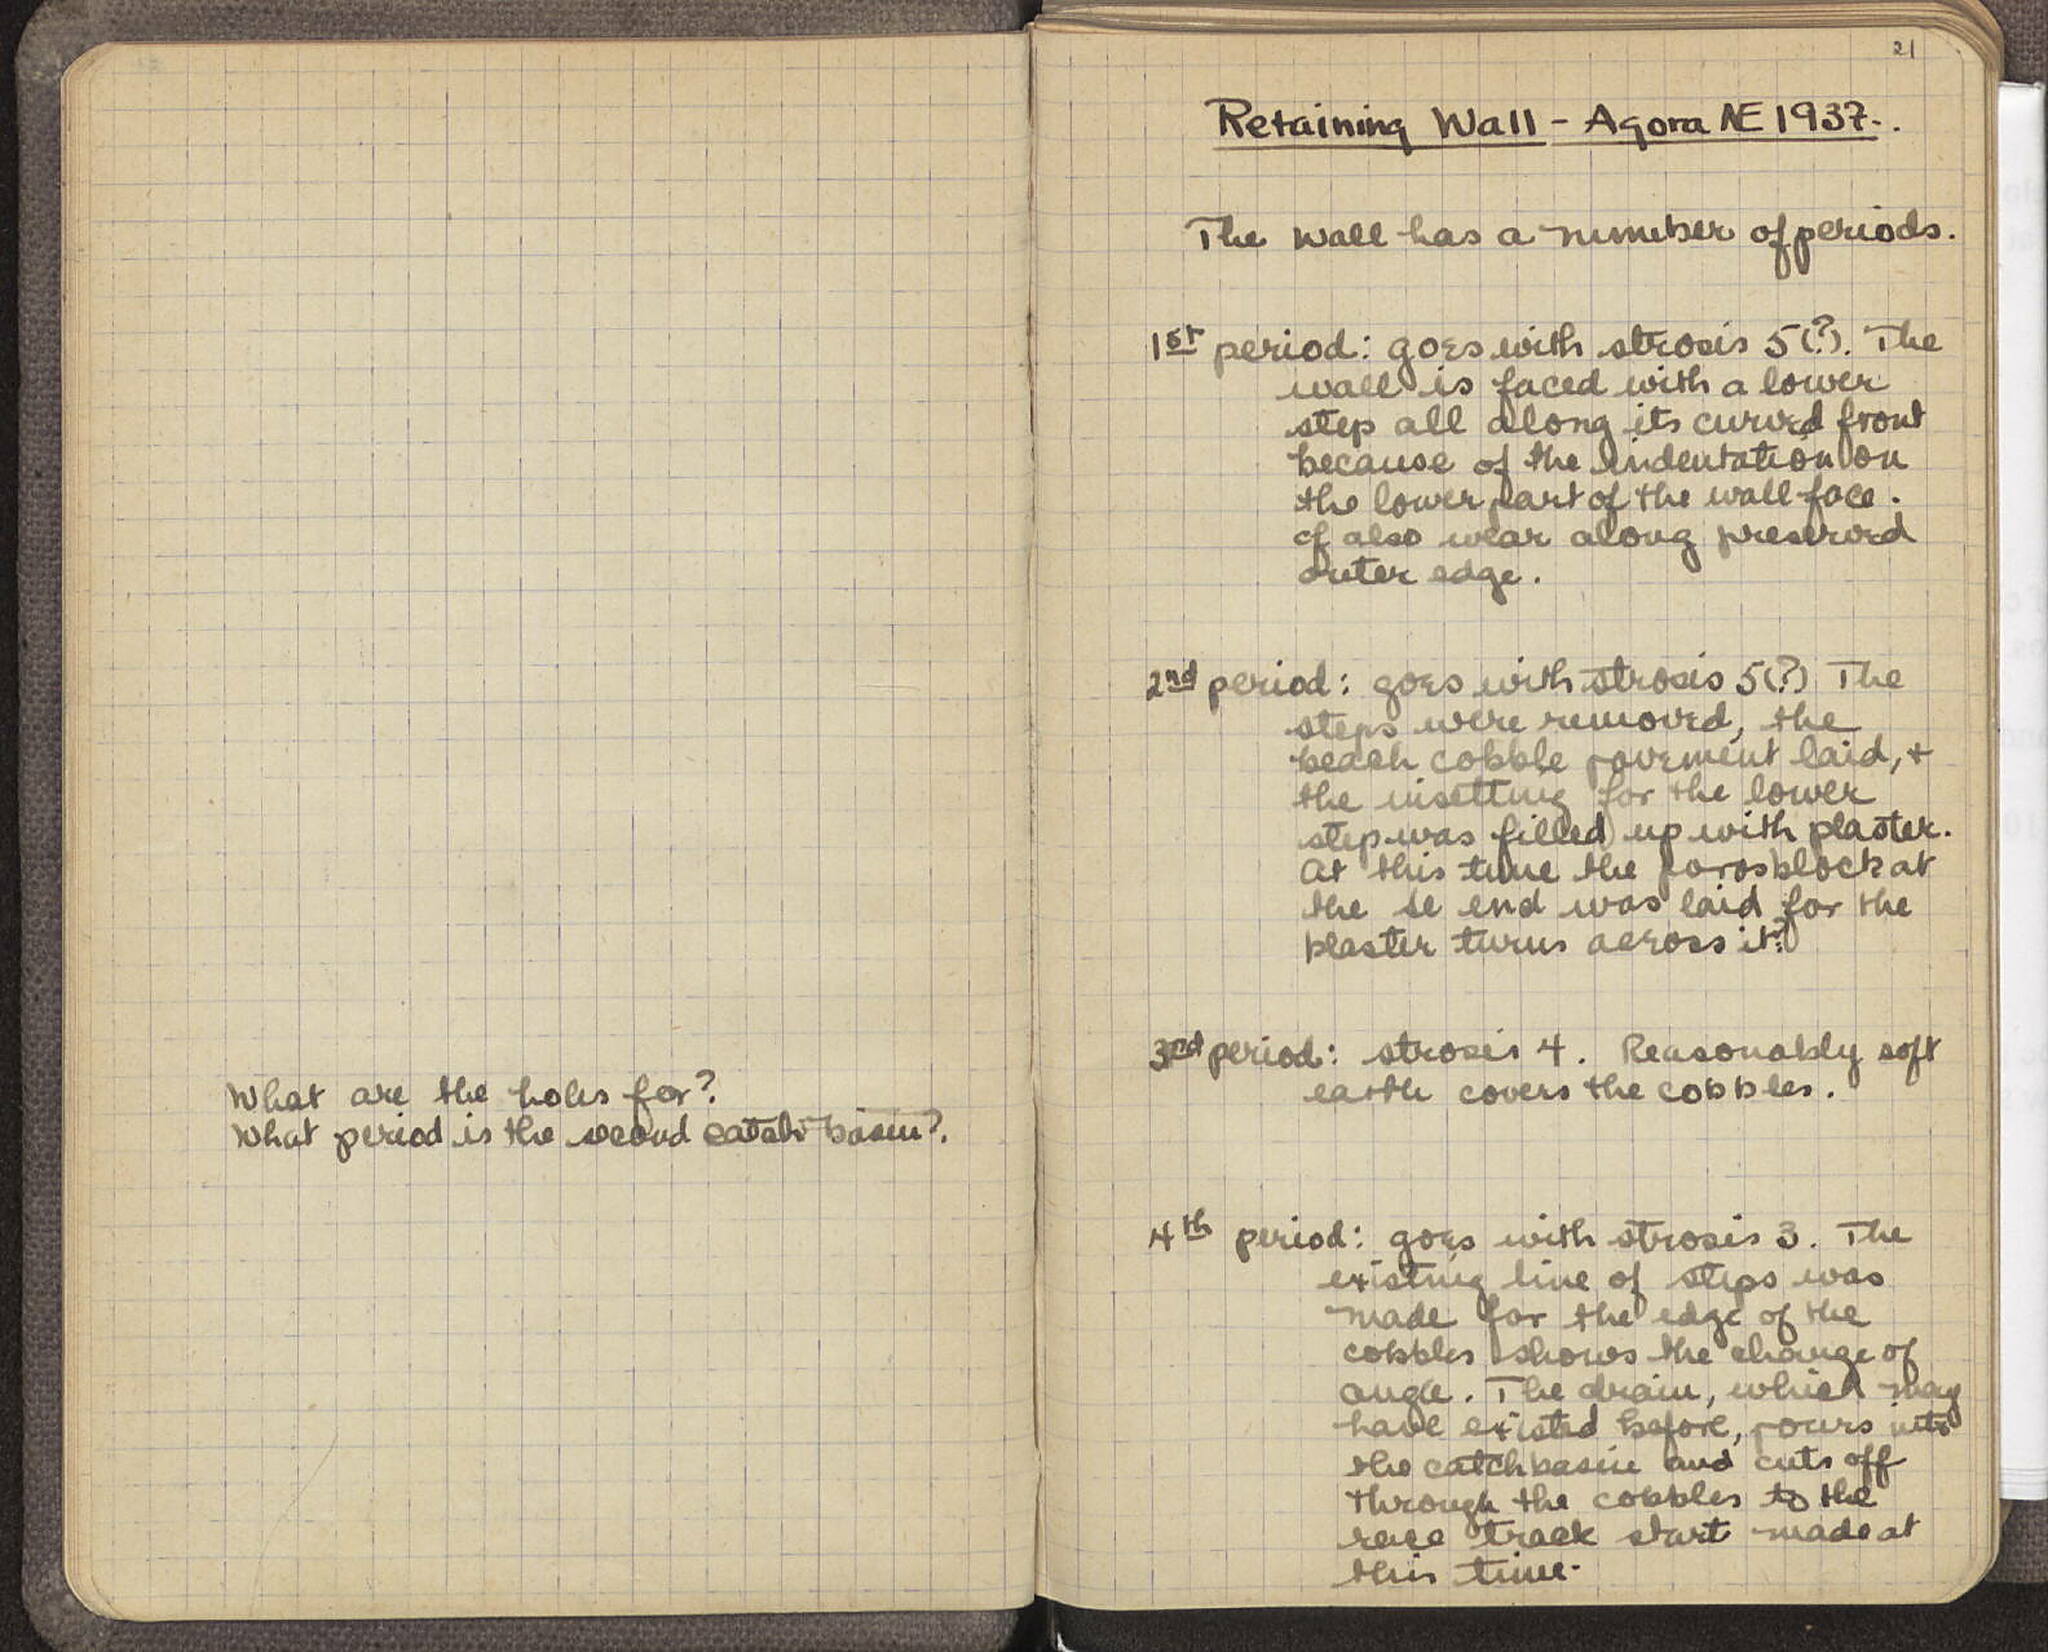 What are the holes for?
What period is the second catch basin?.
21
Retaining Wall - Agora NE 1937.
The wall has a number of periods.
1st period: goes with strosis 5(?). The
wall is faced with a lower
step all along its curved front
because of the indentation on
the lower part of the wall face.
cf also wear along preserved
outer edge.
2nd period: goes with strosis 5(?) The
steps were removed, the
beach cobble pavement laid, +
the insetting for the lower
step was filled up with plaster.
At this time the poros block at
the se end was laid for the
plaster turns across it.
3rd period: strosis 4. Reasonably soft
earth covers the cobbles.
4th period: goes with strosis 3. The
existing line of steps was
made for the edge of the
cobbles shows the change of
angle. The drain, which may
have existed before, pours into
the catchbasin and cuts off
through the cobbles to the
race track start made at
this time.